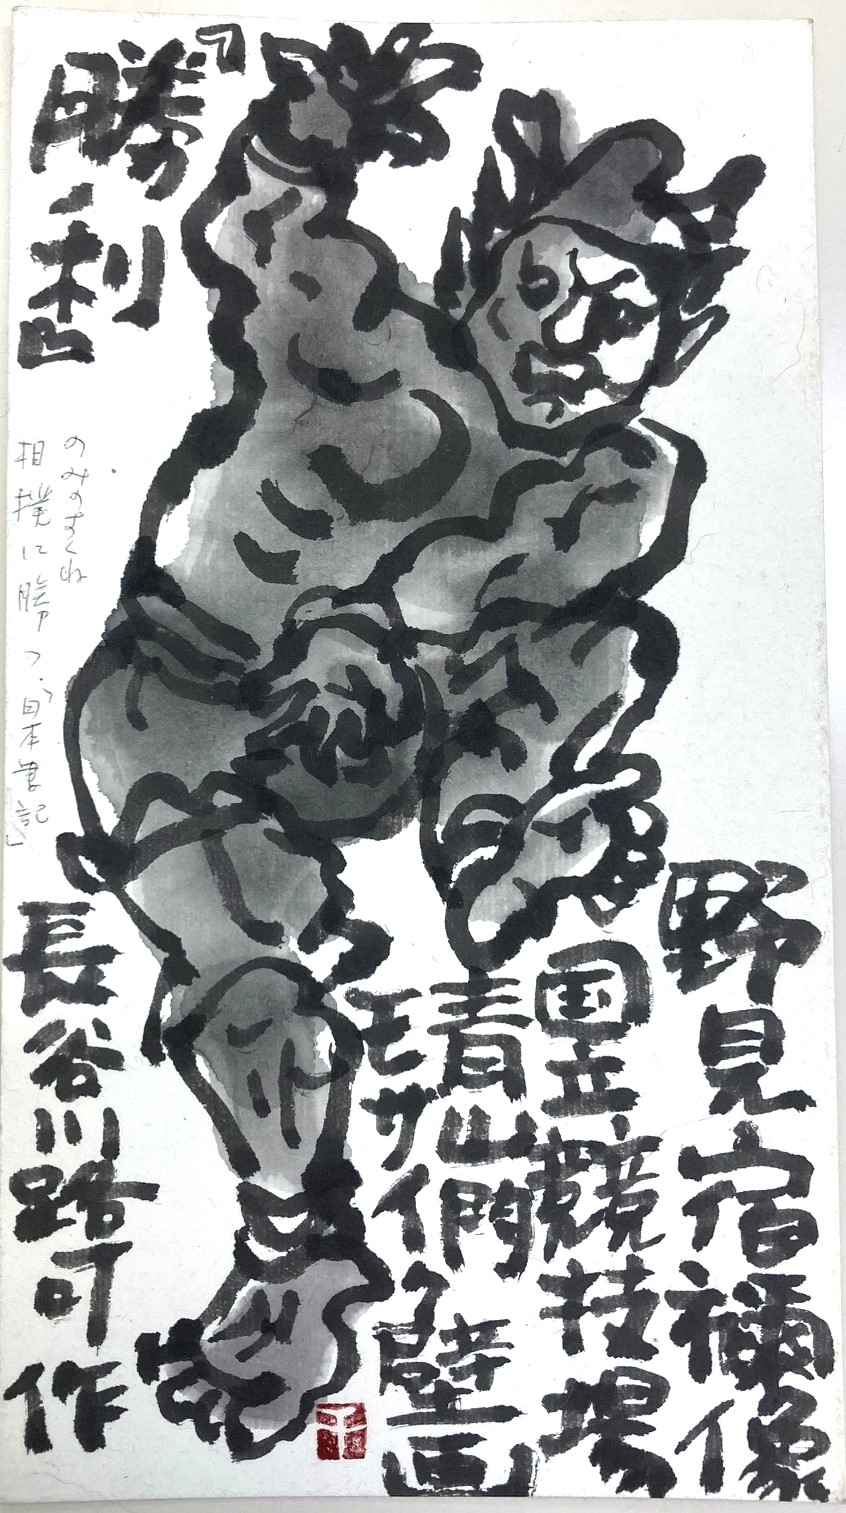 野見宿禰像
国立競技場
青山門
モザイク壁画
『勝利』
のみのすくね
相撲に勝つ「日本書記」
長谷川路可作